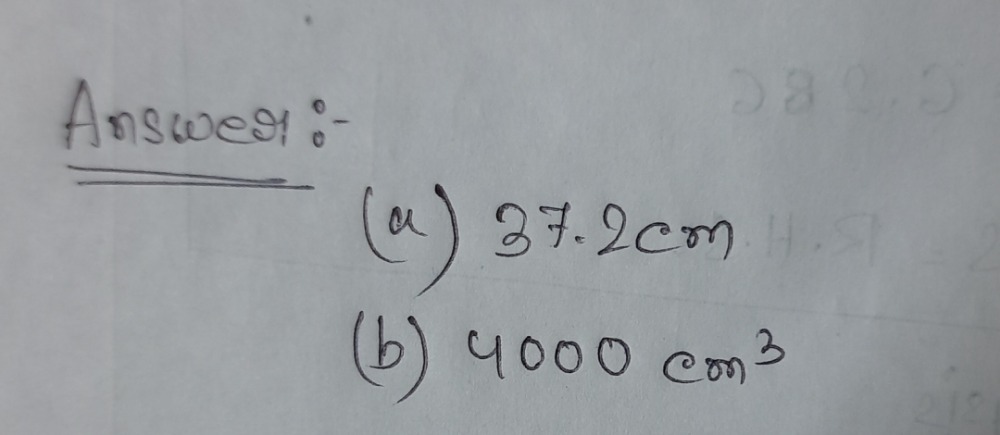 Answer :-
(a) 37.2cm
(b) 4000 cm³